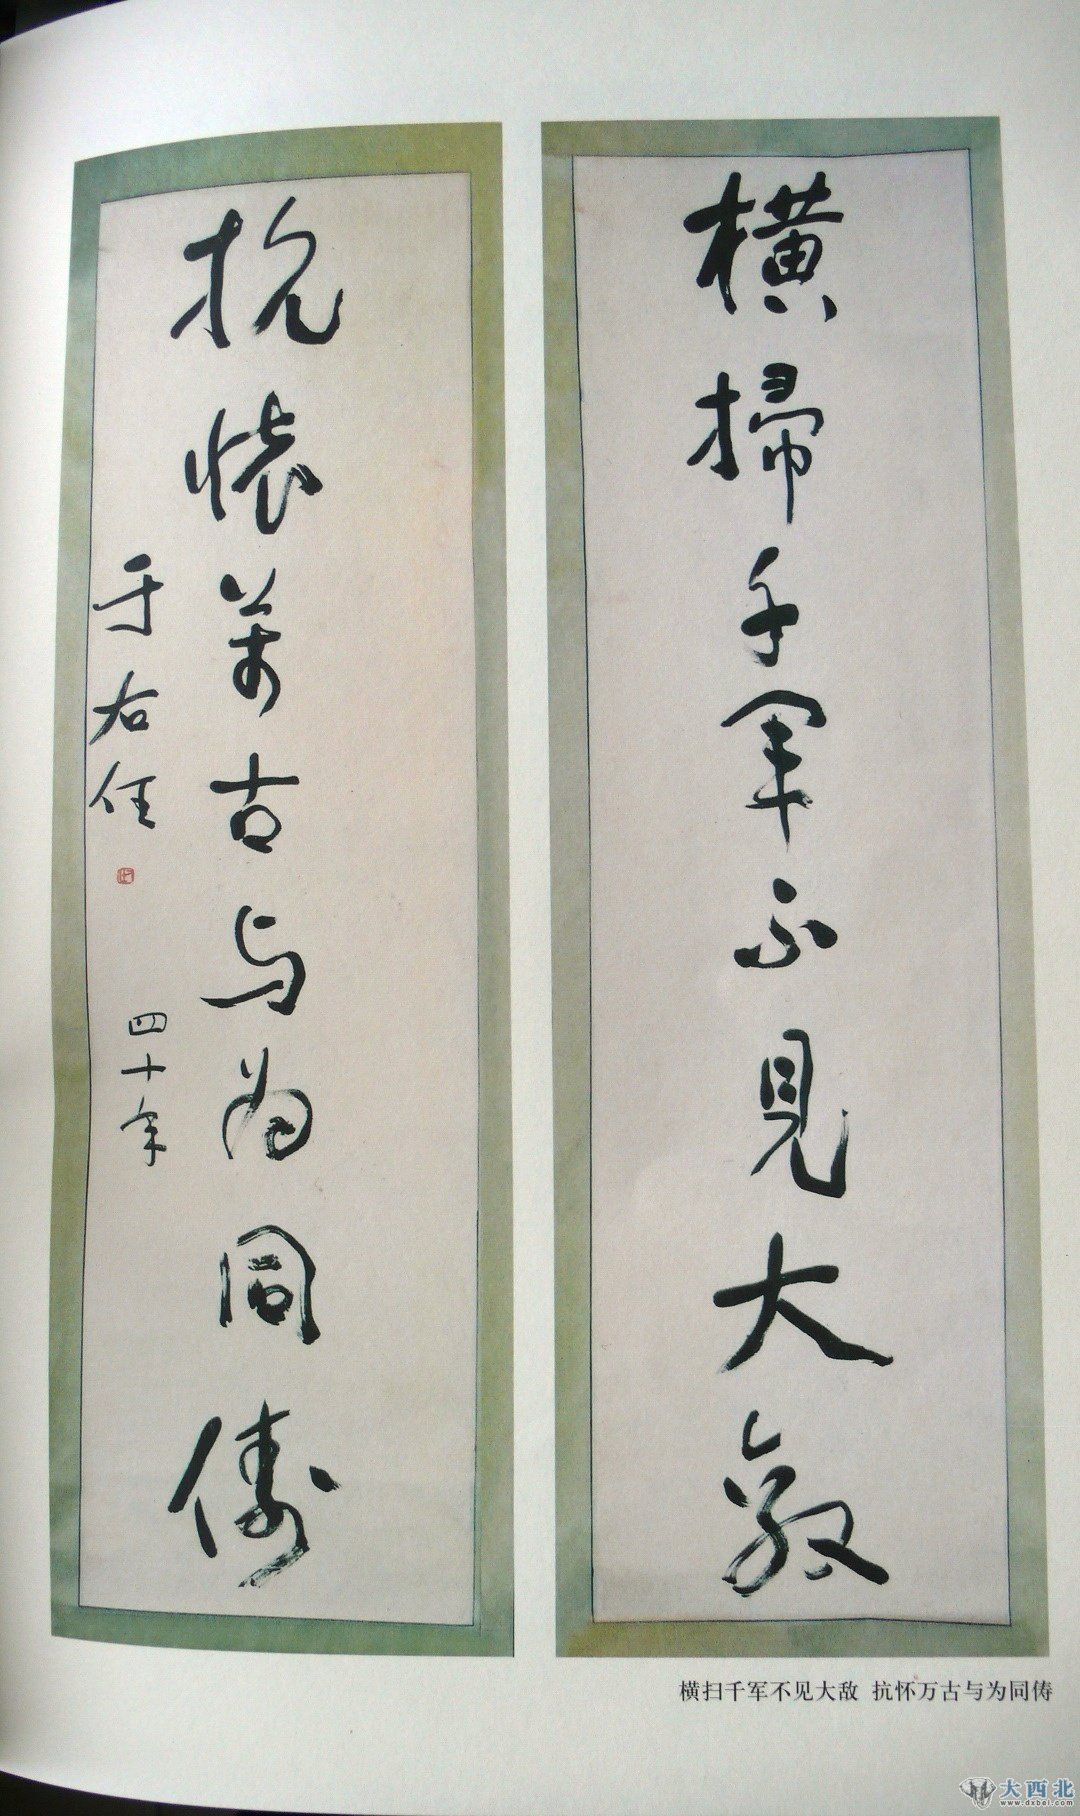 橫掃千軍不見大敵
抗懷萬古与為同儔
于右任
四十年
横扫千军不见大敌 抗怀万古与为同俦
大西北
www.dxbei.com